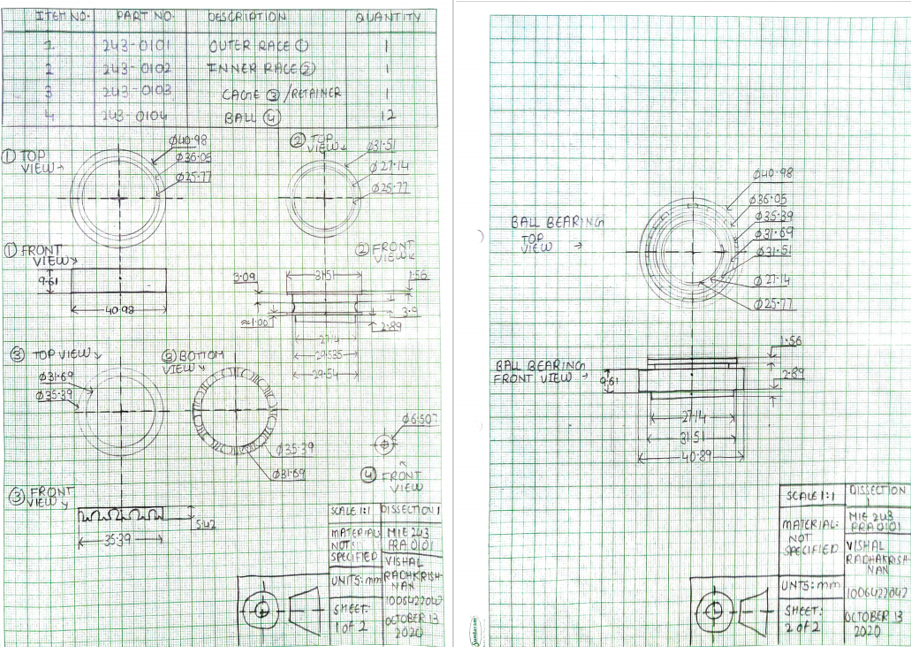 ITEM NO. PART NO. DESCRIPTION QUANTITY
1 243-0101 OUTER RACE ① 1
2 243-0102 INNER RACE ② 1
3 243-0103 CAGE ③ /RETAINER 1
4 243-0104 BALL ④ 12
① TOP
VIEW
Ø40.98
Ø36.05
Ø25.77
② TOP
VIEW
Ø31.51
Ø27.14
Ø25.77
① FRONT
VIEW
9.61
40.98
② FRONT
VIEW
3.09
31.51
1.56
≈1.00
3.9
2.89
27.14
29.535
29.54
③ TOP VIEW
Ø31.69
Ø35.39
③ BOTTOM
VIEW
Ø35.39
Ø31.69
Ø6.50
④ FRONT
VIEW
③ FRONT
VIEW
5.42
35.39
SCALE 1:1 DISSECTION 1
MATERIAL: NOT SPECIFIED
MIE 243
PRA 0101
UNITS: mm
VISHAL
RADHAKRISH-
NAN
1006422042
SHEET:
1 of 2
OCTOBER 13
2020
BALL BEARING
TOP
VIEW
Ø40.98
Ø36.05
Ø35.39
Ø31.69
Ø31.51
Ø27.14
Ø25.77
BALL BEARING
FRONT VIEW
9.61
1.56
2.89
27.14
31.51
40.89
SCALE 1:1 DISSECTION
1
MATERIAL:
NOT
SPECIFIED
MIE 243
PRA 0101
VISHAL
RADHAKRISH-
NAN
UNTS: mm
1006422042
SHEET:
2 of 2
OCTOBER 13
2020